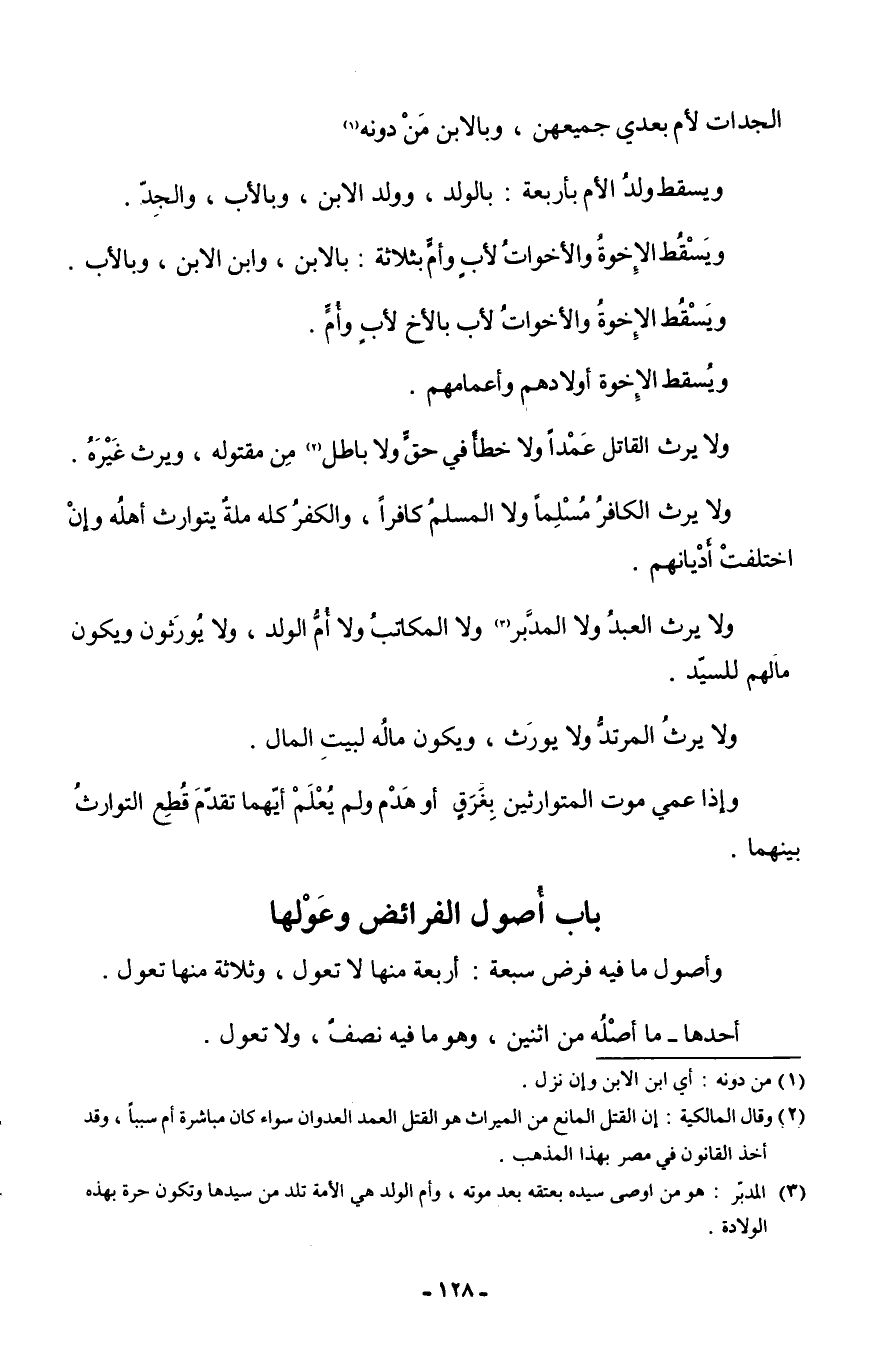 الجدات لأم بعدي جميعهن ، وبالابن مَنْ دونه(١)
ويسقط ولدُ الأم بأربعة : بالولد ، وولد الابن ، وبالأب ، والجدِّ .
ويَسْقُط الإِخوةُ والأخواتُ لأبٍ وأمٍّ بثلاثة : بالابن ، وابن الابن ، وبالأب .
ويَسْقُط الإِخوةُ والأخواتُ لأب بالأخ لأبٍ وأُمٍّ .
ويُسقط الإِخوة أولادهم وأعمامهم .
ولا يرث القاتل عَمْداً ولا خطأً في حقٍّ ولا باطل(٢) مِن مقتوله ، ويرث غَيْرَهُ .
ولا يرث الكافرُ مُسْلِماً ولا المسلمُ كافراً ، والكفرُ كله ملةٌ يتوارث أهلُه وإنْ
اختلفتْ أَدْيانهم .
ولا يرث العبدُ ولا المدبَّر(٣) ولا المكاتبُ ولا أُمُّ الولد ، ولا يُورَثون ويكون
مالهم للسيّد .
ولا يرثُ المرتدُّ ولا يورَث ، ويكون مالُه لبيتِ المال .
وإذا عمي موت المتوارثين بِغَرَقٍ أو هَدْم ولم يُعْلَمْ أيّهما تقدّمَ قُطِع التوارثُ
بينهما .
باب أُصول الفرائض وعَوْلها
وأصول ما فيه فرض سبعة : أربعة منها لا تعول ، وثلاثة منها تعول .
أحدها ـ ما أصْلُه من اثنين ، وهو ما فيه نصفٌ ، ولا تعول .
(١) من دونه : أي ابن الابن وإن نزل .
(٢) وقال المالكية : إن القتل المانع من الميراث هو القتل العمد العدوان سواء كان مباشرة أم سبباً ، وقد
أخذ القانون في مصر بهذا المذهب .
(٣) المدبّر : هو من اوصى سيده بعتقه بعد موته ، وأم الولد هي الأمة تلد من سيدها وتكون حرة بهذه
الولادة .
ـ ١٢٨ ـ